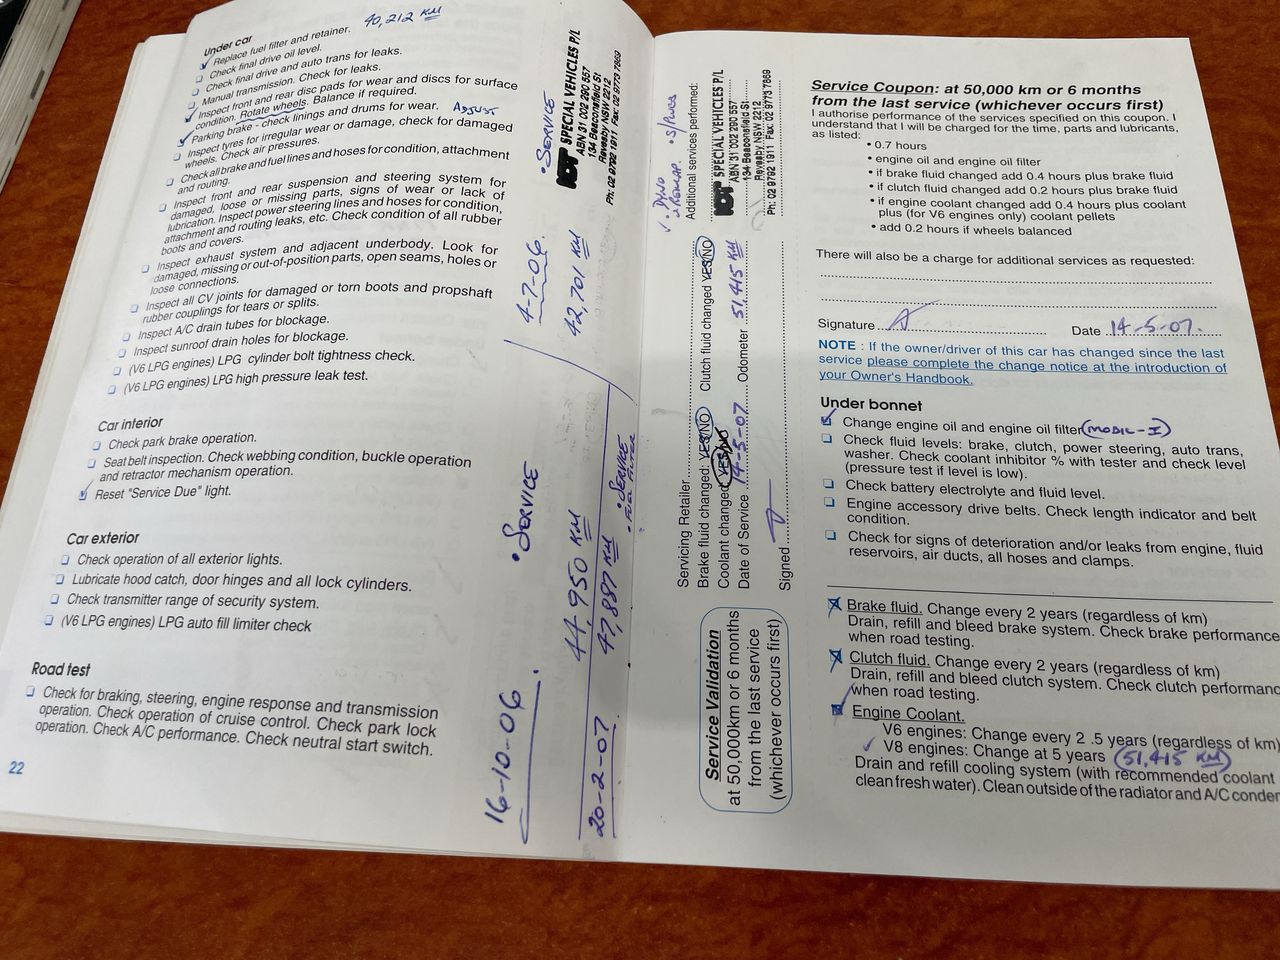 40,212 KM
Under car
Replace fuel filter and retainer.
Check final drive oil level.
Check final drive and auto trans for leaks.
Manual transmission. Check for leaks.
Inspect front and rear disc pads for wear and discs for surface
condition. Rotate wheels. Balance if required.
Parking brake - check linings and drums for wear. ADJUST
Inspect tyres for irregular wear or damage, check for damaged
wheels. Check air pressures.
Check all brake and fuel lines and hoses for condition, attachment
and routing.
Inspect front and rear suspension and steering system for
damaged, loose or missing parts, signs of wear or lack of
lubrication. Inspect power steering lines and hoses for condition,
attachment and routing leaks, etc. Check condition of all rubber
boots and covers.
Inspect exhaust system and adjacent underbody. Look for
damaged, missing or out-of-position parts, open seams, holes or
loose connections.
Inspect all CV joints for damaged or torn boots and propshaft
rubber couplings for tears or splits.
Inspect A/C drain tubes for blockage.
Inspect sunroof drain holes for blockage.
(V6 LPG engines) LPG cylinder bolt tightness check.
(V6 LPG engines) LPG high pressure leak test.
Car interior
Check park brake operation.
Seat belt inspection. Check webbing condition, buckle operation
and retractor mechanism operation.
Reset "Service Due" light.
Car exterior
Check operation of all exterior lights.
Lubricate hood catch, door hinges and all lock cylinders.
Check transmitter range of security system.
(V6 LPG engines) LPG auto fill limiter check
Road test
Check for braking, steering, engine response and transmission
operation. Check operation of cruise control. Check park lock
operation. Check A/C performance. Check neutral start switch.
22
4-7-06 • SERVICE
42,701 KM
KDT SPECIAL VEHICLES P/L
ABN 31 002 290 557
134 Beaconsfield St
Revesby NSW 2212
Ph: 02 9792 1911 Fax: 02 9773 7869
16-10-06 • SERVICE
44,950 KM
20-2-07 47,887 KM • SERVICE
• FUEL FILTER
Service Validation
at 50,000km or 6 months
from the last service
(whichever occurs first)
• DYNO • S/PLUGS
+ REMAP.
Servicing Retailer Additional services performed:
Brake fluid changed: YES/NO Clutch fluid changed YES/NO
Coolant changed YES/NO
Date of Service 14-5-07 Odometer 51,415 KM
Signed
KDT SPECIAL VEHICLES P/L
ABN 31 002 290 557
134 Beaconsfield St
Revesby NSW 2212
Ph: 02 9792 1911 Fax: 02 9773 7869
Service Coupon: at 50,000 km or 6 months
from the last service (whichever occurs first)
I authorise performance of the services specified on this coupon. I
understand that I will be charged for the time, parts and lubricants,
as listed:
• 0.7 hours
• engine oil and engine oil filter
• if brake fluid changed add 0.4 hours plus brake fluid
• if clutch fluid changed add 0.2 hours plus brake fluid
• if engine coolant changed add 0.4 hours plus coolant
plus (for V6 engines only) coolant pellets
• add 0.2 hours if wheels balanced
There will also be a charge for additional services as requested:
Signature Date 14-5-07.
NOTE : If the owner/driver of this car has changed since the last
service please complete the change notice at the introduction of
your Owner's Handbook.
Under bonnet
Change engine oil and engine oil filter (MOBIL-1)
Check fluid levels: brake, clutch, power steering, auto trans,
washer. Check coolant inhibitor % with tester and check level
(pressure test if level is low).
Check battery electrolyte and fluid level.
Engine accessory drive belts. Check length indicator and belt
condition.
Check for signs of deterioration and/or leaks from engine, fluid
reservoirs, air ducts, all hoses and clamps.
Brake fluid. Change every 2 years (regardless of km)
Drain, refill and bleed brake system. Check brake performance
when road testing.
Clutch fluid. Change every 2 years (regardless of km)
Drain, refill and bleed clutch system. Check clutch performanc
when road testing.
Engine Coolant.
V6 engines: Change every 2 .5 years (regardless of km)
V8 engines: Change at 5 years (51,415 KM)
Drain and refill cooling system (with recommended coolant
clean fresh water). Clean outside of the radiator and A/C conden